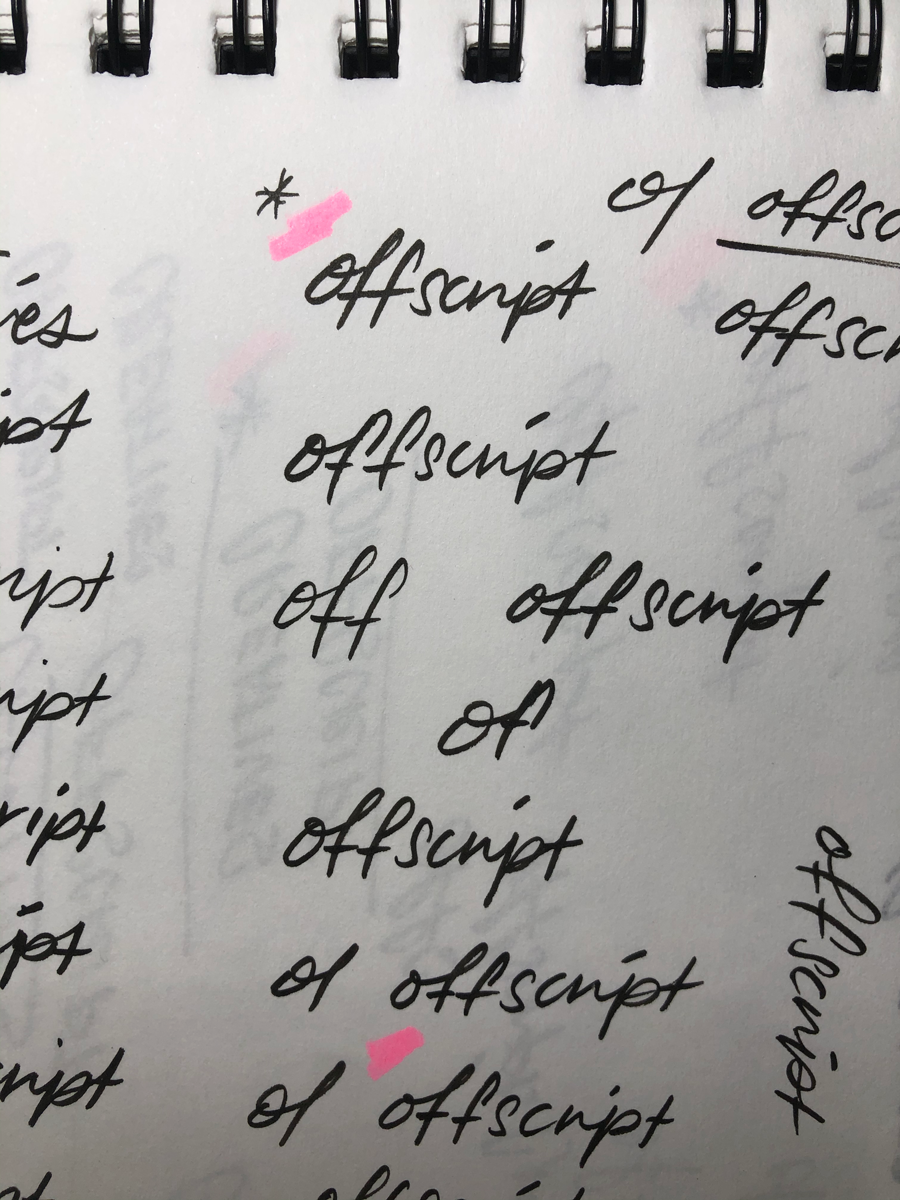 * offscript
of offsc
offscr
ies
ipt
offscript
ript
off offscript
ript
of
ript
offscript
ipt
of offscript
ript
of offscript
offscript